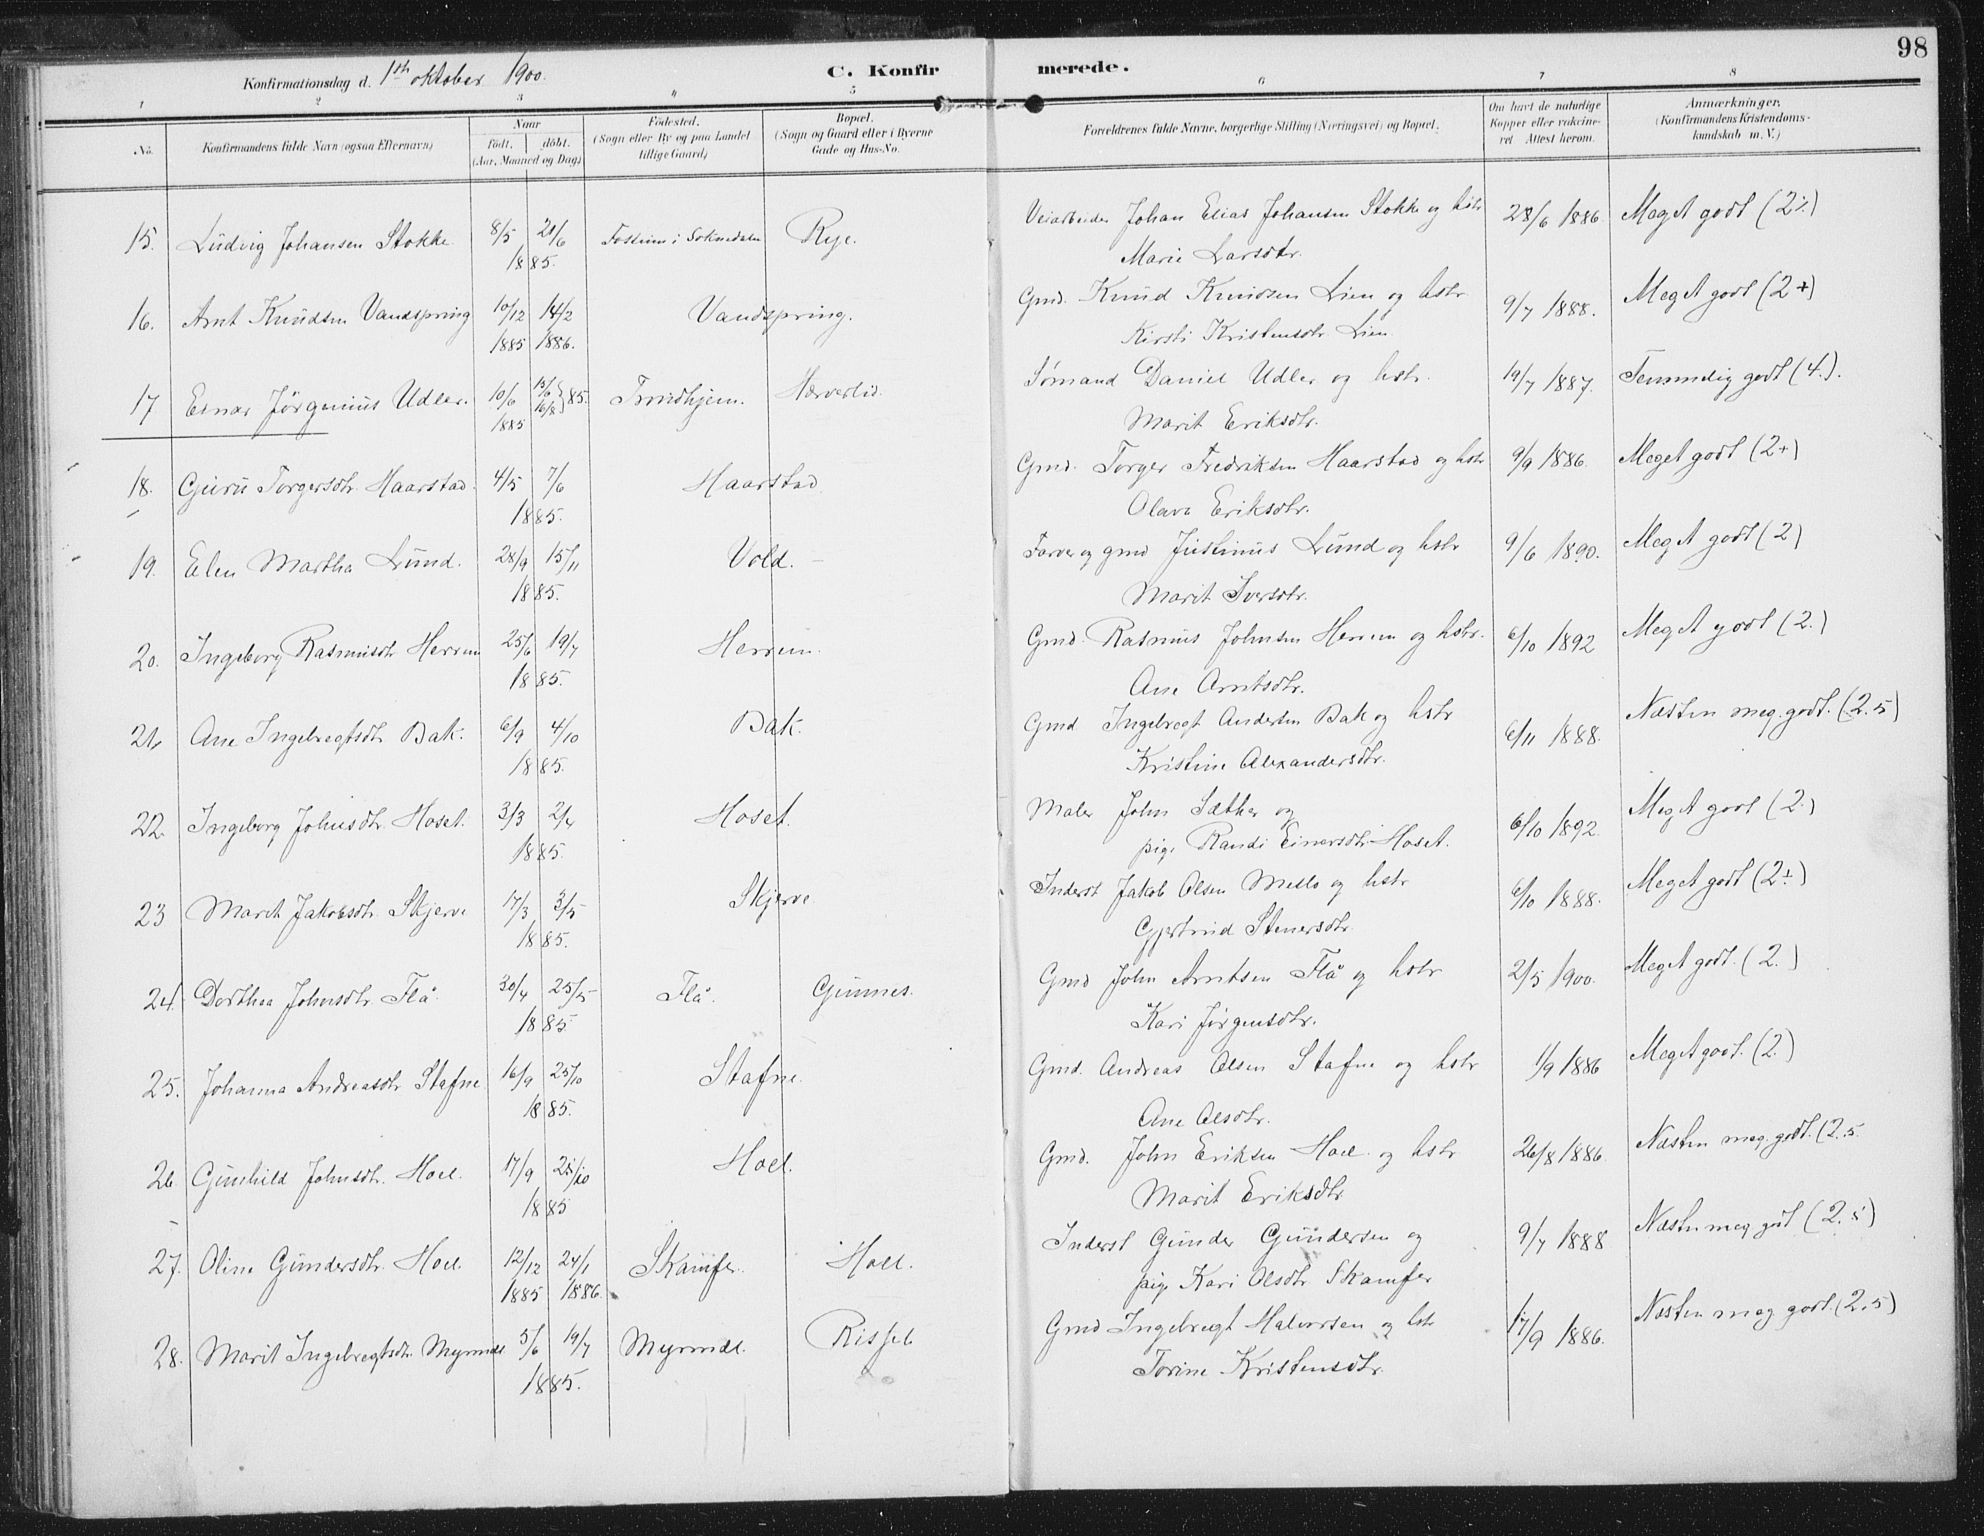 98
Konfirmationsdag d. 1th oktober 1900.
C. Konfirmerede.
1 2 3 4 5 6 7 8
No.
Konfirmandens fulde Navn (ogsaa Efternavn)
Naar
födt. döbt.
(Aar, Maaned og Dag)
Födested.
(Sogn eller By og paa Landet
tillige Gaard)
Bopæl.
(Sogn og Gaard eller i Byerne
Gade og Hus-No.
Forældrenes fulde Navne, borgerlige Stilling (Næringsvei) og Bopæl.
Om havt de naturlige
Kopper eller vakcine-
ret Attest herom.
Anmærkninger.
(Konfirmandens Kristendoms-
kundskab m. V.)
15. Ludvig Johansen Stokke 8/5 21/6 i Soknedalen Rye. Veiarbeider Johan Elias Johansen Stokke og hstr 28/6 1886. Meget godt (2÷)
1885. Marie Larsdtr.
16. Arnt Knudsen Vandspring 10/12 14/2 Vandspring. Gmd. Knud Knudsen Lien og hstr 9/7 1888. Meget godt (2+)
1885 1886. Kirsti Kristensdtr Lien
17 Einar Jörginius Udler. 10/6 15/6 16/8 } 85. Trondhjem. Sömand Daniel Udler og hstr. 19/7 1887. Temmelig godt (4.).
1885 Marit Eriksdtr.
18. Guru Torgersdtr. Haarstad. 4/5 7/6 Haarstad Gmd. Torger Fredriksen Haarstad og hstr 9/9 1886. Meget godt (2+)
1885. Olava Eriksdtr.
19. Elen Martha Lund. 28/9 15/11 Vold. Farver og gmd Justinus Lund og hstr 9/6 1890. Meget godt (2)
1885. Marit Iversdtr.
20. Ingeborg Rasmusdtr Herrem 25/6 19/7 Herrem. Gmd. Rasmus Johnsen Herrem og hstr. 6/10 1892 Meget godt (2.)
1885. Ane Arntsdtr.
21. Ane Ingebregtsdtr Bak. 6/9 4/10 Bak. Gmd Ingebregt Andersen Bak og hstr 6/11 1888. Næsten meg. godt. (2.5)
1885. Kristine Alexandersdtr.
22. Ingeborg Johnsdtr. Hoset. 3/3 2/4 Hoset. Maler John Sæther og 6/10 1892. Meget godt (2.)
1885. pige Randi Einersdtr Hoset.
23 Marit Jakobsdtr. Skjerve 17/3 3/5 Skjerve Inderst Jakob Olsen Mello og hstr 6/10 1888. Meget godt (2±)
1885. Gjertrud Stenersdtr.
24. Dorthea Johnsdtr. Flå. 30/4 25/5 Flå. Gunnes. Gmd John Arntsen Flå og hstr 2/5 1900. Meget godt. (2.)
1885. Kari Jörgensdtr.
25. Johanna Andreasdtr Stafne 16/9 25/10 Stafne. Gmd. Andreas Olsen Stafne og hstr 1/9 1886 Meget godt. (2.)
1885. Ane Olsdtr.
26. Gunhild Johnsdtr. Hoel. 17/9 25/10 Hoel. Gmd. John Eriksen Hoel og hstr 26/8 1886. Næsten meg. godt. (2.5.
1885 Marit Eriksdtr
27. Oline Gundersdtr. Hoel. 12/12 24/1 Skamfer. Hoel. Inderst Gunder Gundersen og 9/7 1888 Næsten meg godt (2.5)
1885 1886. pige Kari Olsdtr Skamfer
28. Marit Ingebregtsdtr. Myrmdl. 5/6 19/7 Myrmdl. Gmd Ingebregt Halvorsen og hstr 17/9 1886. Næsten meg godt. (2.5)
1885. Torine Kristensdtr.